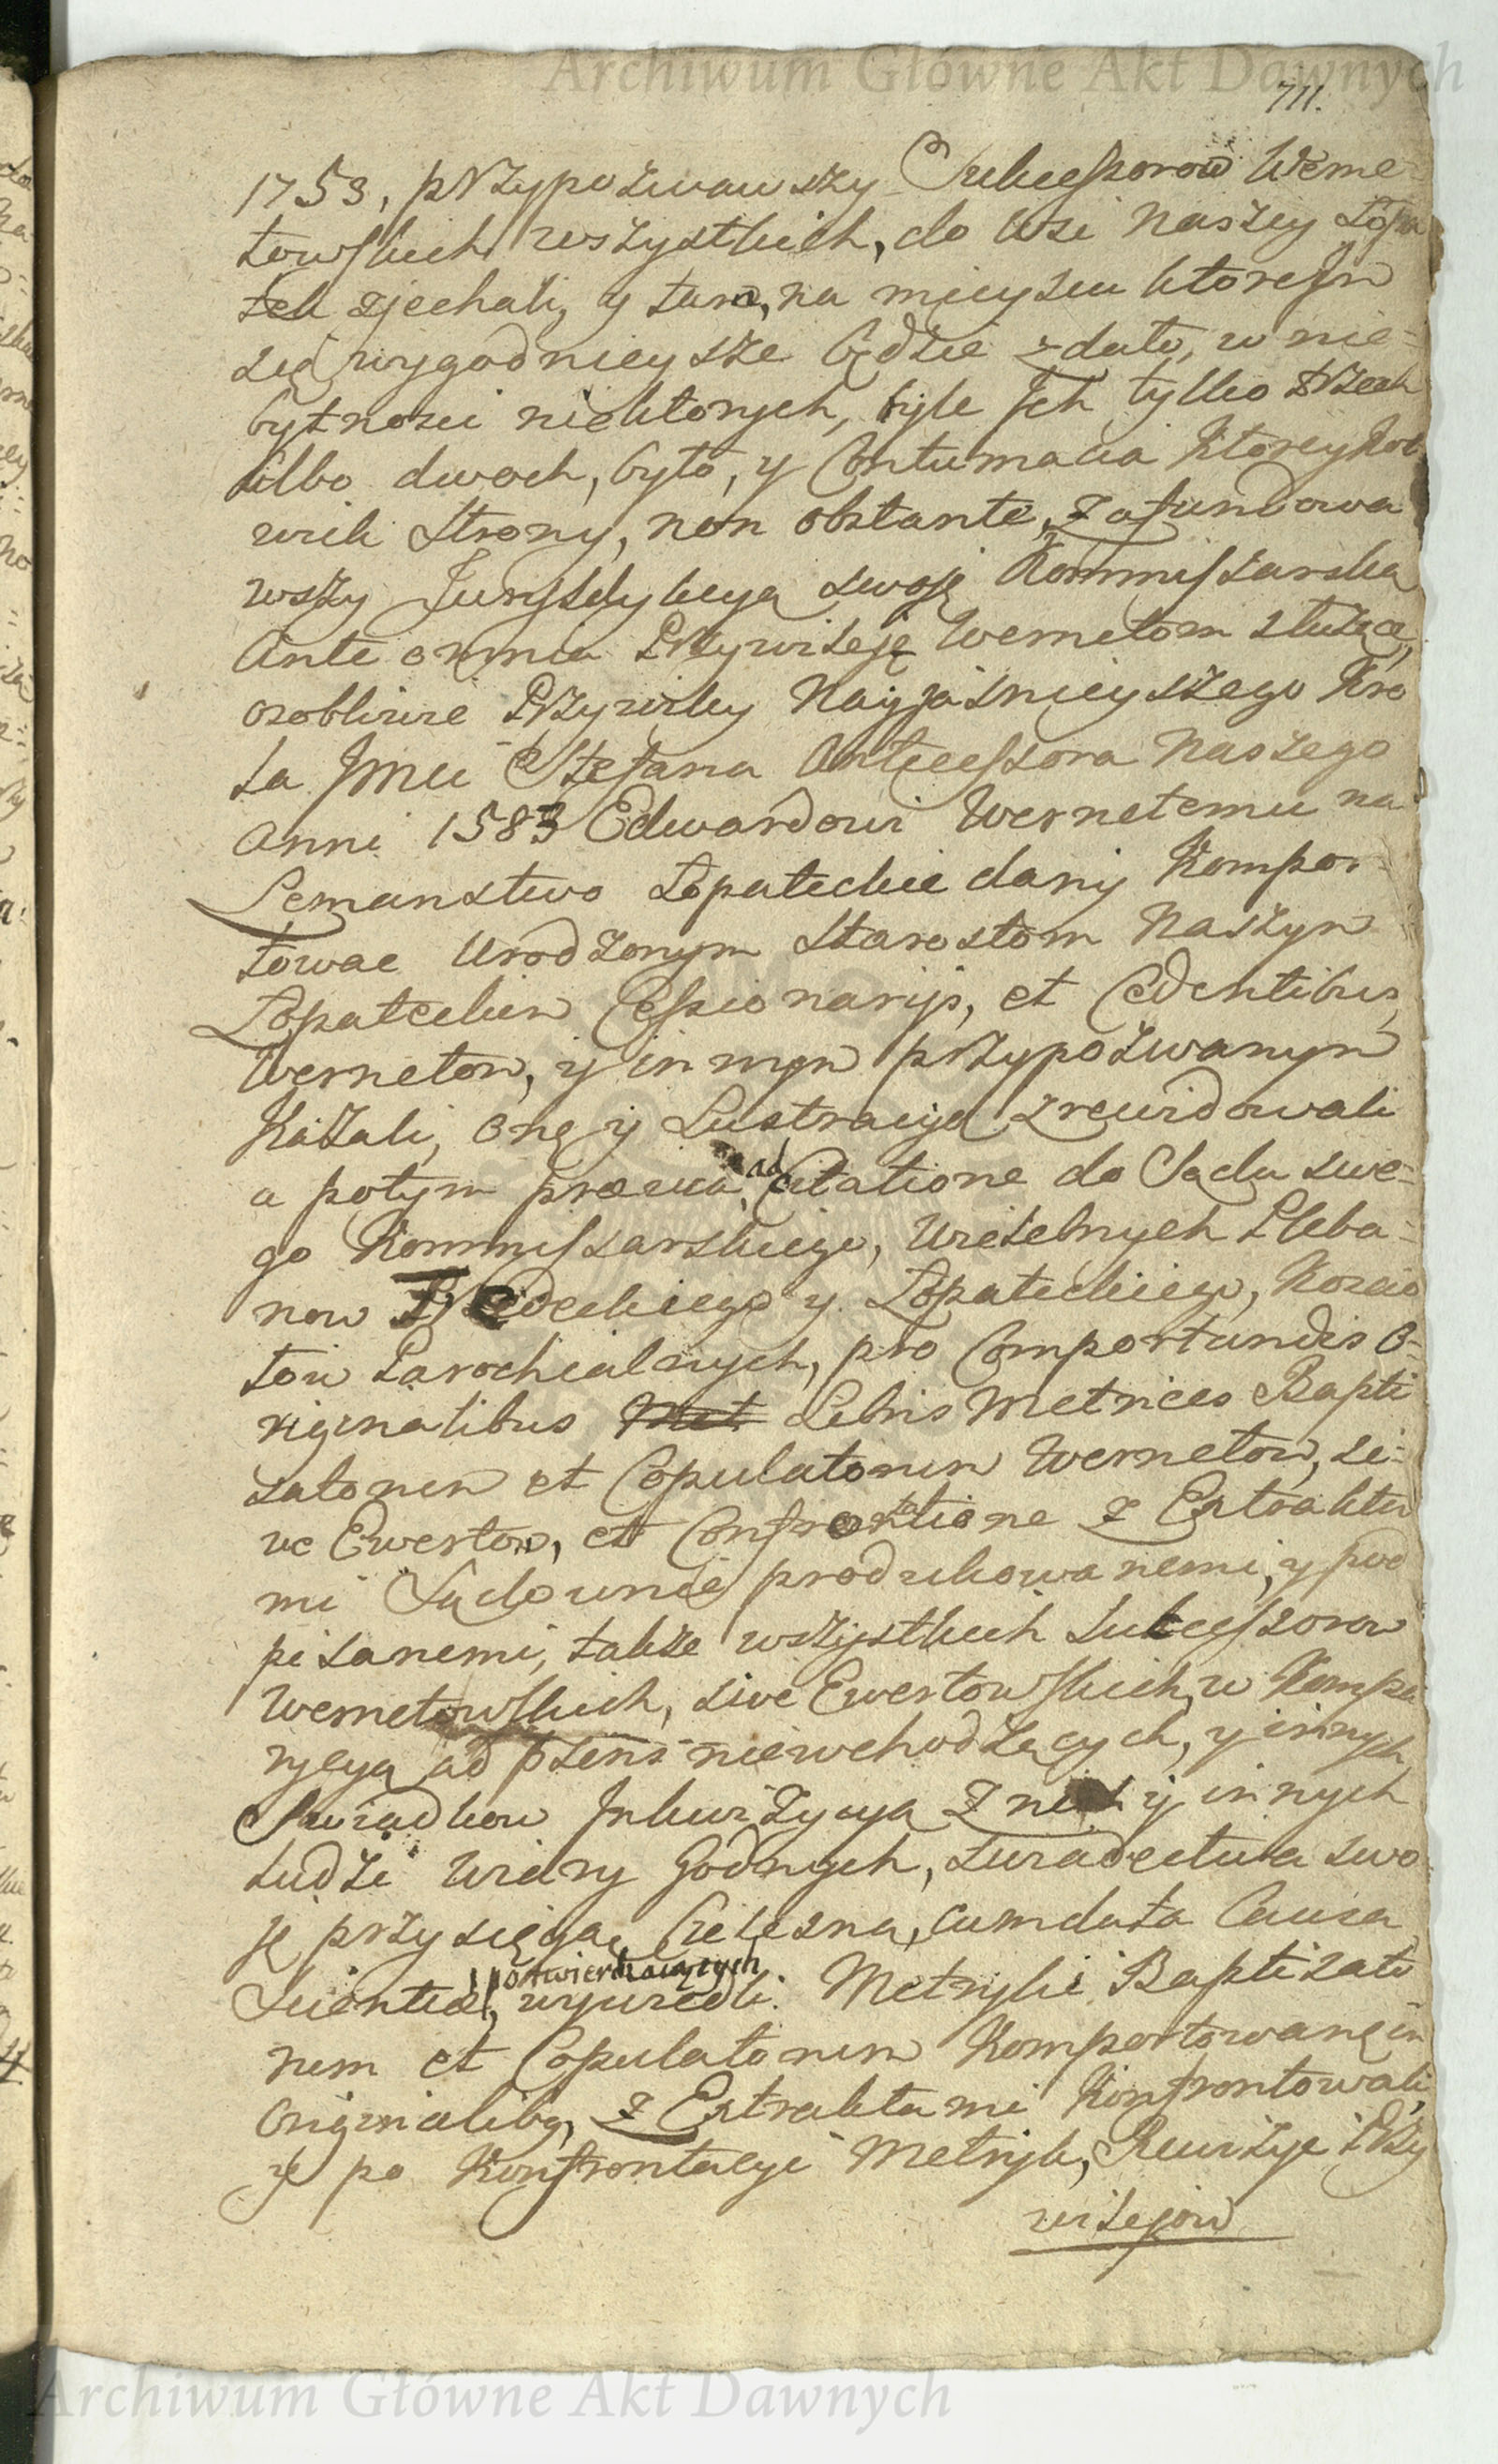 Archiwum Główne Akt Dawnych
711.
1753, przypozwawszy Sukcessorow Werne
towskich wszystkich, do Wsi Naszey Łopa
tek zjechali, y tam, na mieyscu ktorejm
się wygodnieysze będzie zdało, w nie-
bytnosci niektorych, byle Jch tylko trzech
albo dwoch, było, y Contumacia Ktoreykol
wiek Strony, non obstante, Zafundowa
wszy Juryzdykcyą swoję Kommissarską
Ante omnia Przywileje Wernetom służące,
osobliwie Przywiley Nayjaśnieyszego Kro
la Jmci Stefana Antecessora Naszego
Anni 1583 Edwardowi Wernetemu na
Lemanstwo Łopateckie dany Kompor-
towac Urodzonym Starostom Naszym
Łopateckim Cessionarijs, et Cedentibus,
Wernetom, y innym przypozwanym
Kazali, onę y Lustracyą zrewidowali
a potym praevia ad Citatione do Sądu swe-
go Kommissarskiego, Wielebnych Pleba-
now Radeckiego y Łopateckiego, Koscio
łow Parochialnych, pro Comportandis O-
riginalibus Met Libris Metrices Bapti
zatorum et Copulatorum Wernetow, si-
ve Ewertow, et Confrontatione z Extrakta
mi Sądownie produkowanemi, y pod
pisanemi, także wszystkich Sukcessorow
Wernetowskich, sive Ewertowskich, w Kompa
rycyą ad psens niewchodzących, y innych
Swiadkow Inkwizycyą z nich y innych
Ludzi Wiary godnych, swiadectwa swo
je przysięgą Cielesną, cum data Causa
Scientiae, potwierdzaiących wywiedli. Metryki Baptizato
rum et Copulatorum Komportowane in
Originalibq, z Extraktami Konfrontowali,
y po Konfrontacyi Metryk, Rewizyi Przy
wilejow
Archiwum Główne Akt Dawnych